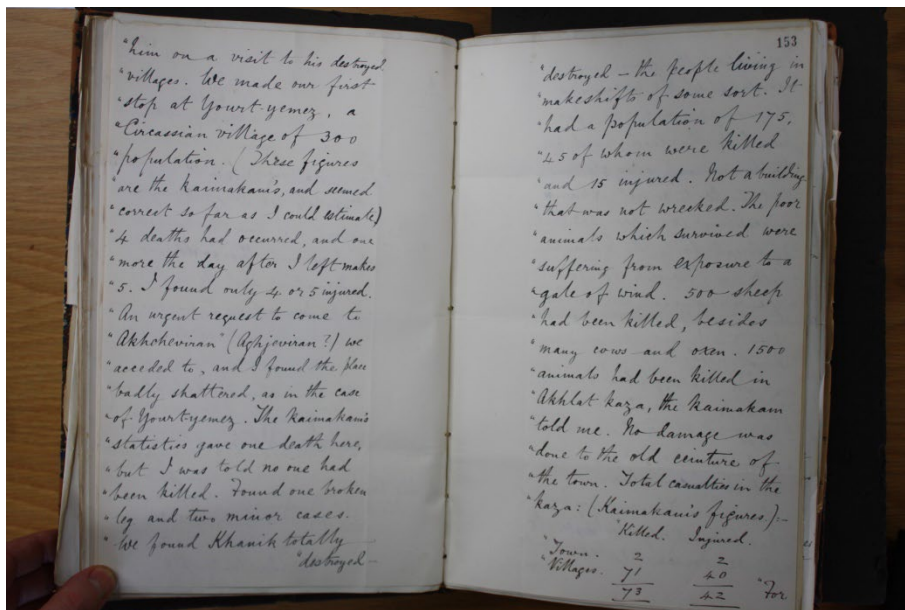 "him on a visit to his destroyed
"villages. We made our first
"stop at Yourt-yemez, a
"Circassian village of 300
"population. (These figures
"are the Kaimakam's, and seemed
"correct so far as I could estimate)
"4 deaths had occurred, and one
"more the day after I left makes
"5. I found only 4 or 5 injured.
"An urgent request to come to
"Akhcheviran" (Aghjeviran?) we
"acceded to, and I found the place
"badly shattered, as in the case
"of Yourt-yemez. The Kaimakam's
"statistics gave one death here,
"but I was told no one had
"been killed. Found one broken
"leg and two minor cases.
"We found Khanik totally
"destroyed —
153
"destroyed — the people living in
"makeshifts of some sort. It
"had a population of 175,
"45 of whom were killed
"and 15 injured. Not a building
"that was not wrecked. The poor
"animals which survived were
"suffering from exposure to a
"gale of wind. 500 sheep
"had been killed, besides
"many cows and oxen. 1500
"animals had been killed in
"Akhlat kaza, the Kaimakam
"told me. No damage was
"done to the old ceinture of
"the town. Total casualties in the
"kaza: (Kaimakam's figures):—
"Killed. Injured.
"Town. 2 2
"Villages. 71 40
73 42 "For